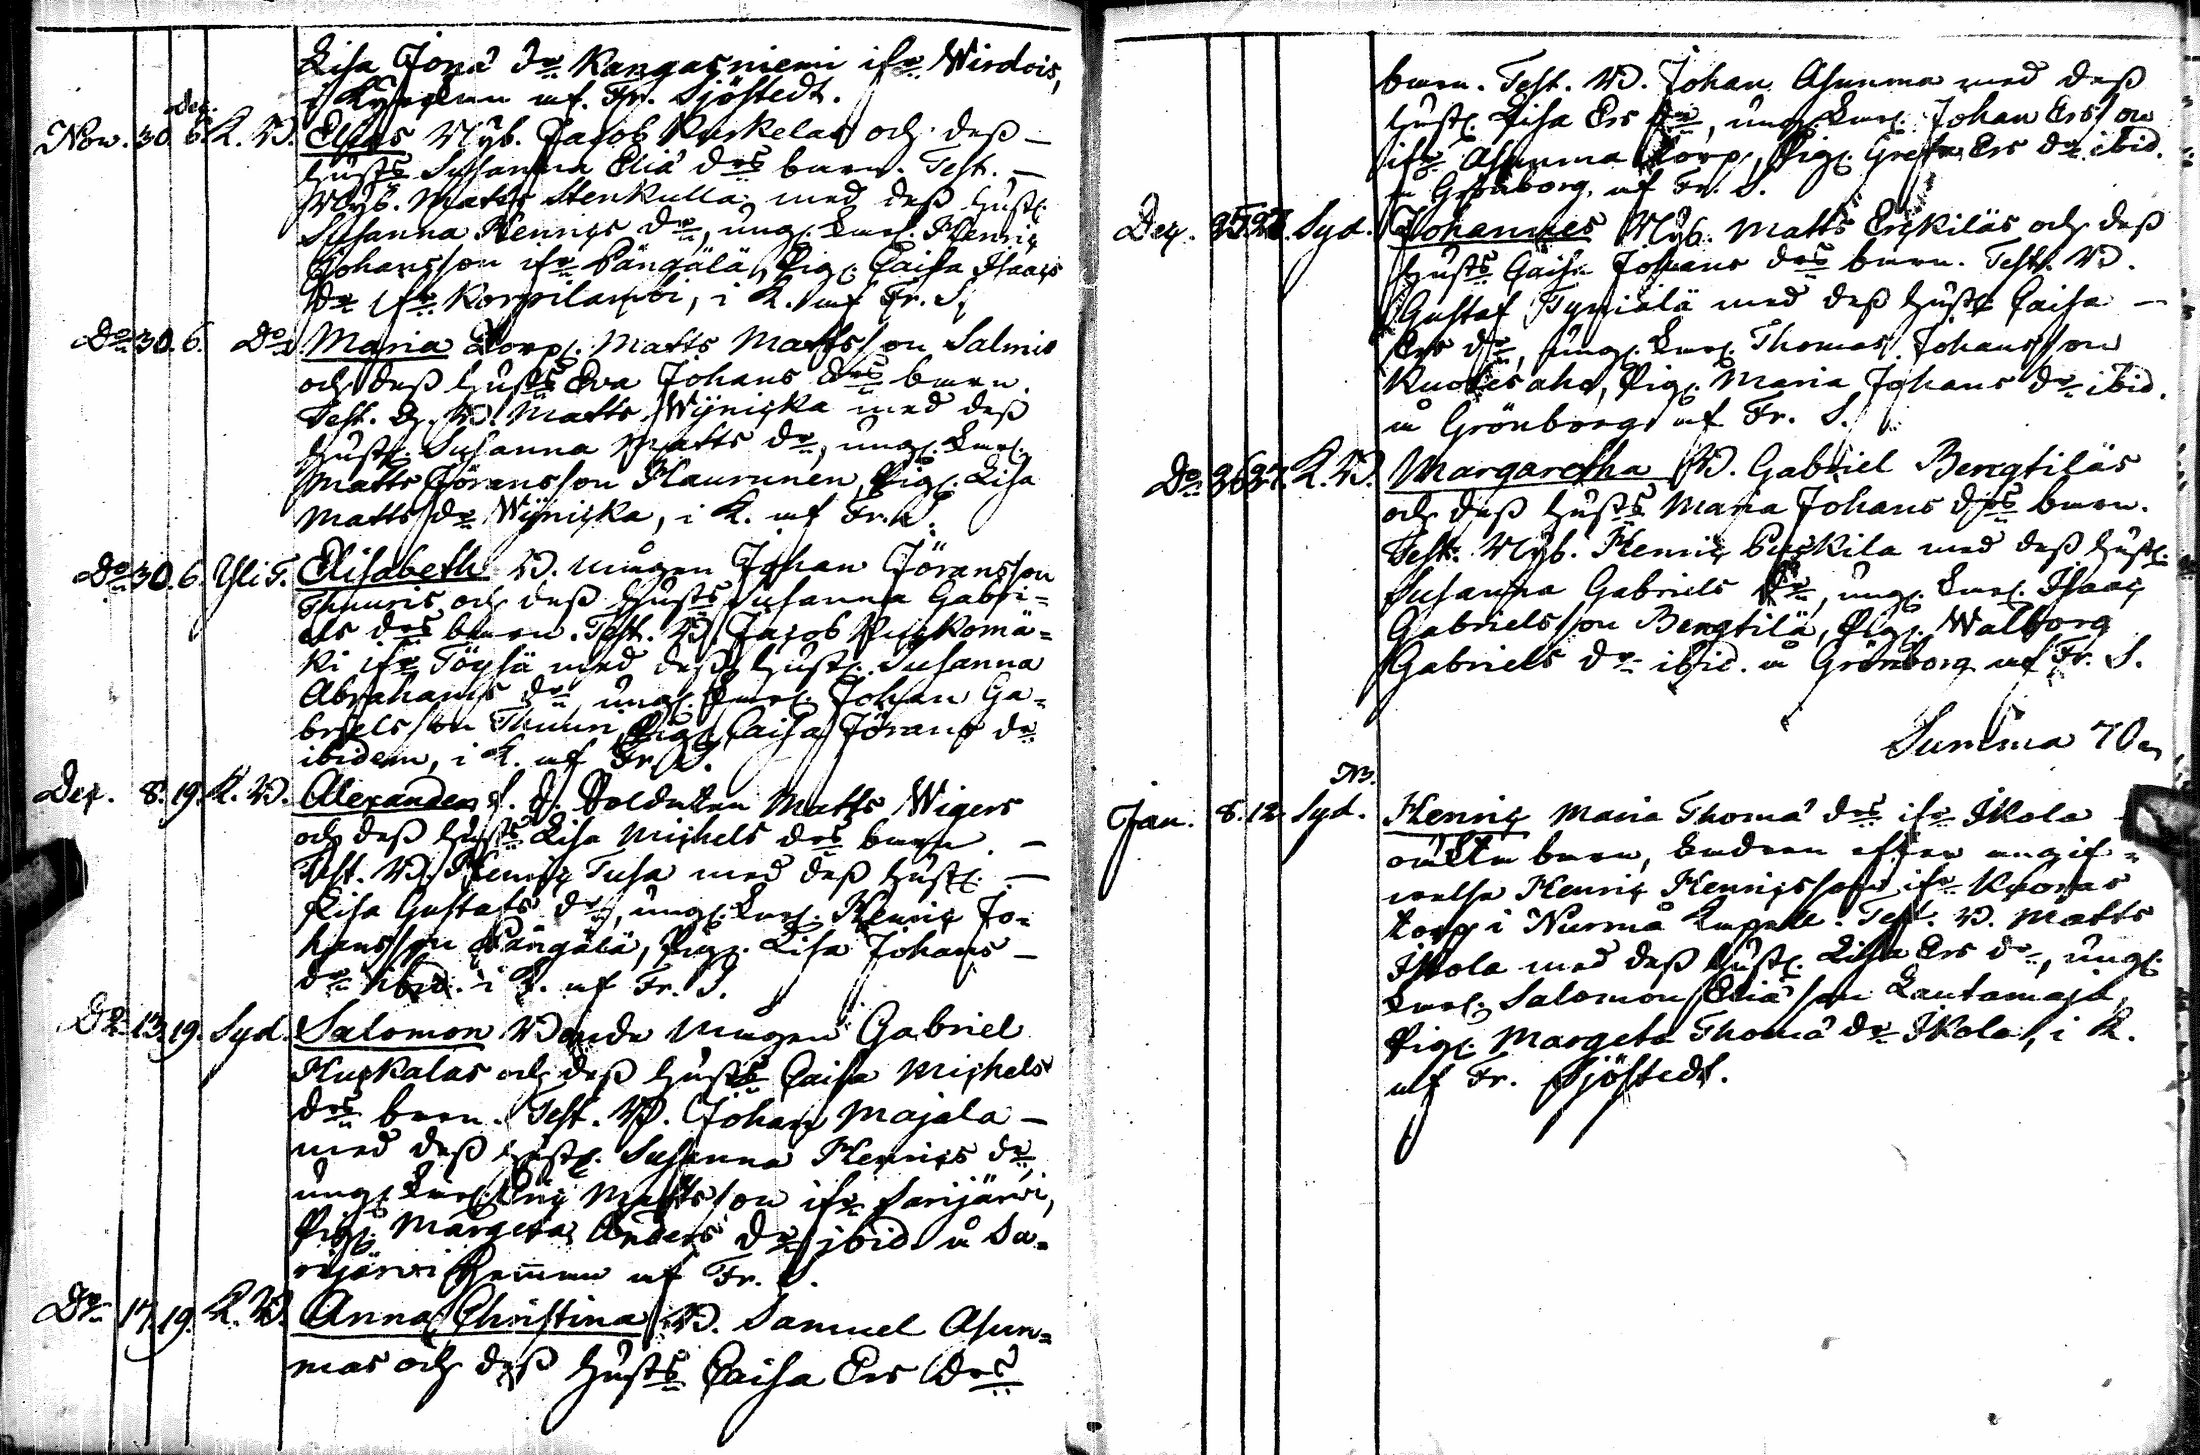 Lisa Jonæ dr Kangasniemi ifr. Wirdois,
i Kyrckan af Fr. Sjöstedt.
Dec.
Nov. 30. 6. K. W. Elias Nyb. Jacob Kuckelas och deß
hust:s Susanna Eliæ drs barn. Test.
Nyb. Matts Stenkulla med deß hust.
Susanna Henrics dr, ung. Karl. Henric
Johansson ifr Pängälä, Pig. Caisa Isaacs
dr ifr Korpilambi, i K. af Fr. S.
Do 30. 6. Do Maria Torp. Matts Mattsson Salmis
och deß hust:s Eva Johans drs barn.
Test. B. Matts Wÿnicka med deß
hust. Susanna Matts dr, ung. Karl.
Matts Jöransson Haurunen, Pig. Lisa
Matts dr Wÿnicka, i K. af Fr. S.
Do 30. 6. Yli T. Elisabeth B. mågen Johan Jöransson
Thuuris och deß hust:s Susanna Gabri-
els drs barn. Test. B. Jacob
ki ifr Töysä med deß hust. Susanna
Abrahams dr, ung. Karl. Johan Ga-
brielsson Thuuri, Pig. Caisa Jörans dr
ibidem, i K. af Fr. S.
Dec. 8. 19. K. W. Alexander f. d. Soldaten Matts Wigers
och deß hust:s Lisa Michels drs barn.
Test. B. Henric Tusa med deß hust.
Lisa Gustafs dr, ung. Karl. Henric Jo-
hansson Pängälä, Pig. Lisa Johans
dr ibid. i K. af Fr. S.
Do 13. 19. Syd. Salomon Bonde mågen Gabriel
Huckalas och deß hust:s Caisa Michels
drs barn. Test. B. Johan Majala
med deß hust. Susanna Henrics dr,
ung. Karl. Eric Mattsson ifr Sarijärvi,
Pig. Margeta Anders dr ibid. å Sa-
rijärvi Hemman af Fr. S.
Do 17. 19. K. W. Anna Christina B. Samuel Asun-
mas och deß hust:s Caisa Ers drs
barn. Test. B. Johan Asunma med deß
hust. Lisa Ers dr, ung. Karl. Johan Ersson
ifr Asunma Torp, Pig. Greta Ers dr ibid.
å Grönborg, af Fr. S.
Dec. 25. 27. Syd. Johannes Nyb. Matts Erckiläs och deß
hust:s Caisa Johans drs barn. Test. B.
Gustaf med deß hust. Caisa
Ers dr, ung. Karl. Thomas Johansson
Kuokesaho, Pig. Maria Johans dr ibid.
å Grönborg af Fr. S.
Do 26. 27. K. W. Margaretha B. Gabriel Bengtiläs
och deß hust:s Maria Johans drs barn.
Test. Nyb. Henric med deß hust.
Susanna Gabriels dr, ung. Karl. Isaac
Gabrielsson Bengtilä, Pig. Walborg
Gabriels dr ibid. å Grönborg af Fr. S.
Summa 70
NB.
Jan. 8. 12. Syd. Henric Maria Thomæ drs ifr Ikola
oäkta barn, fadren efter angif-
velse Henric Henricsson ifr
torp i Nurmå Kapell. Test. B. Matts
Ikola med deß hust. Lisa Ers dr, ung.
Karl. Salomon Eliæ son Lautamaja,
Pig. Margeta Thomæ dr Ikola, i K.
af Fr. Sjöstedt.